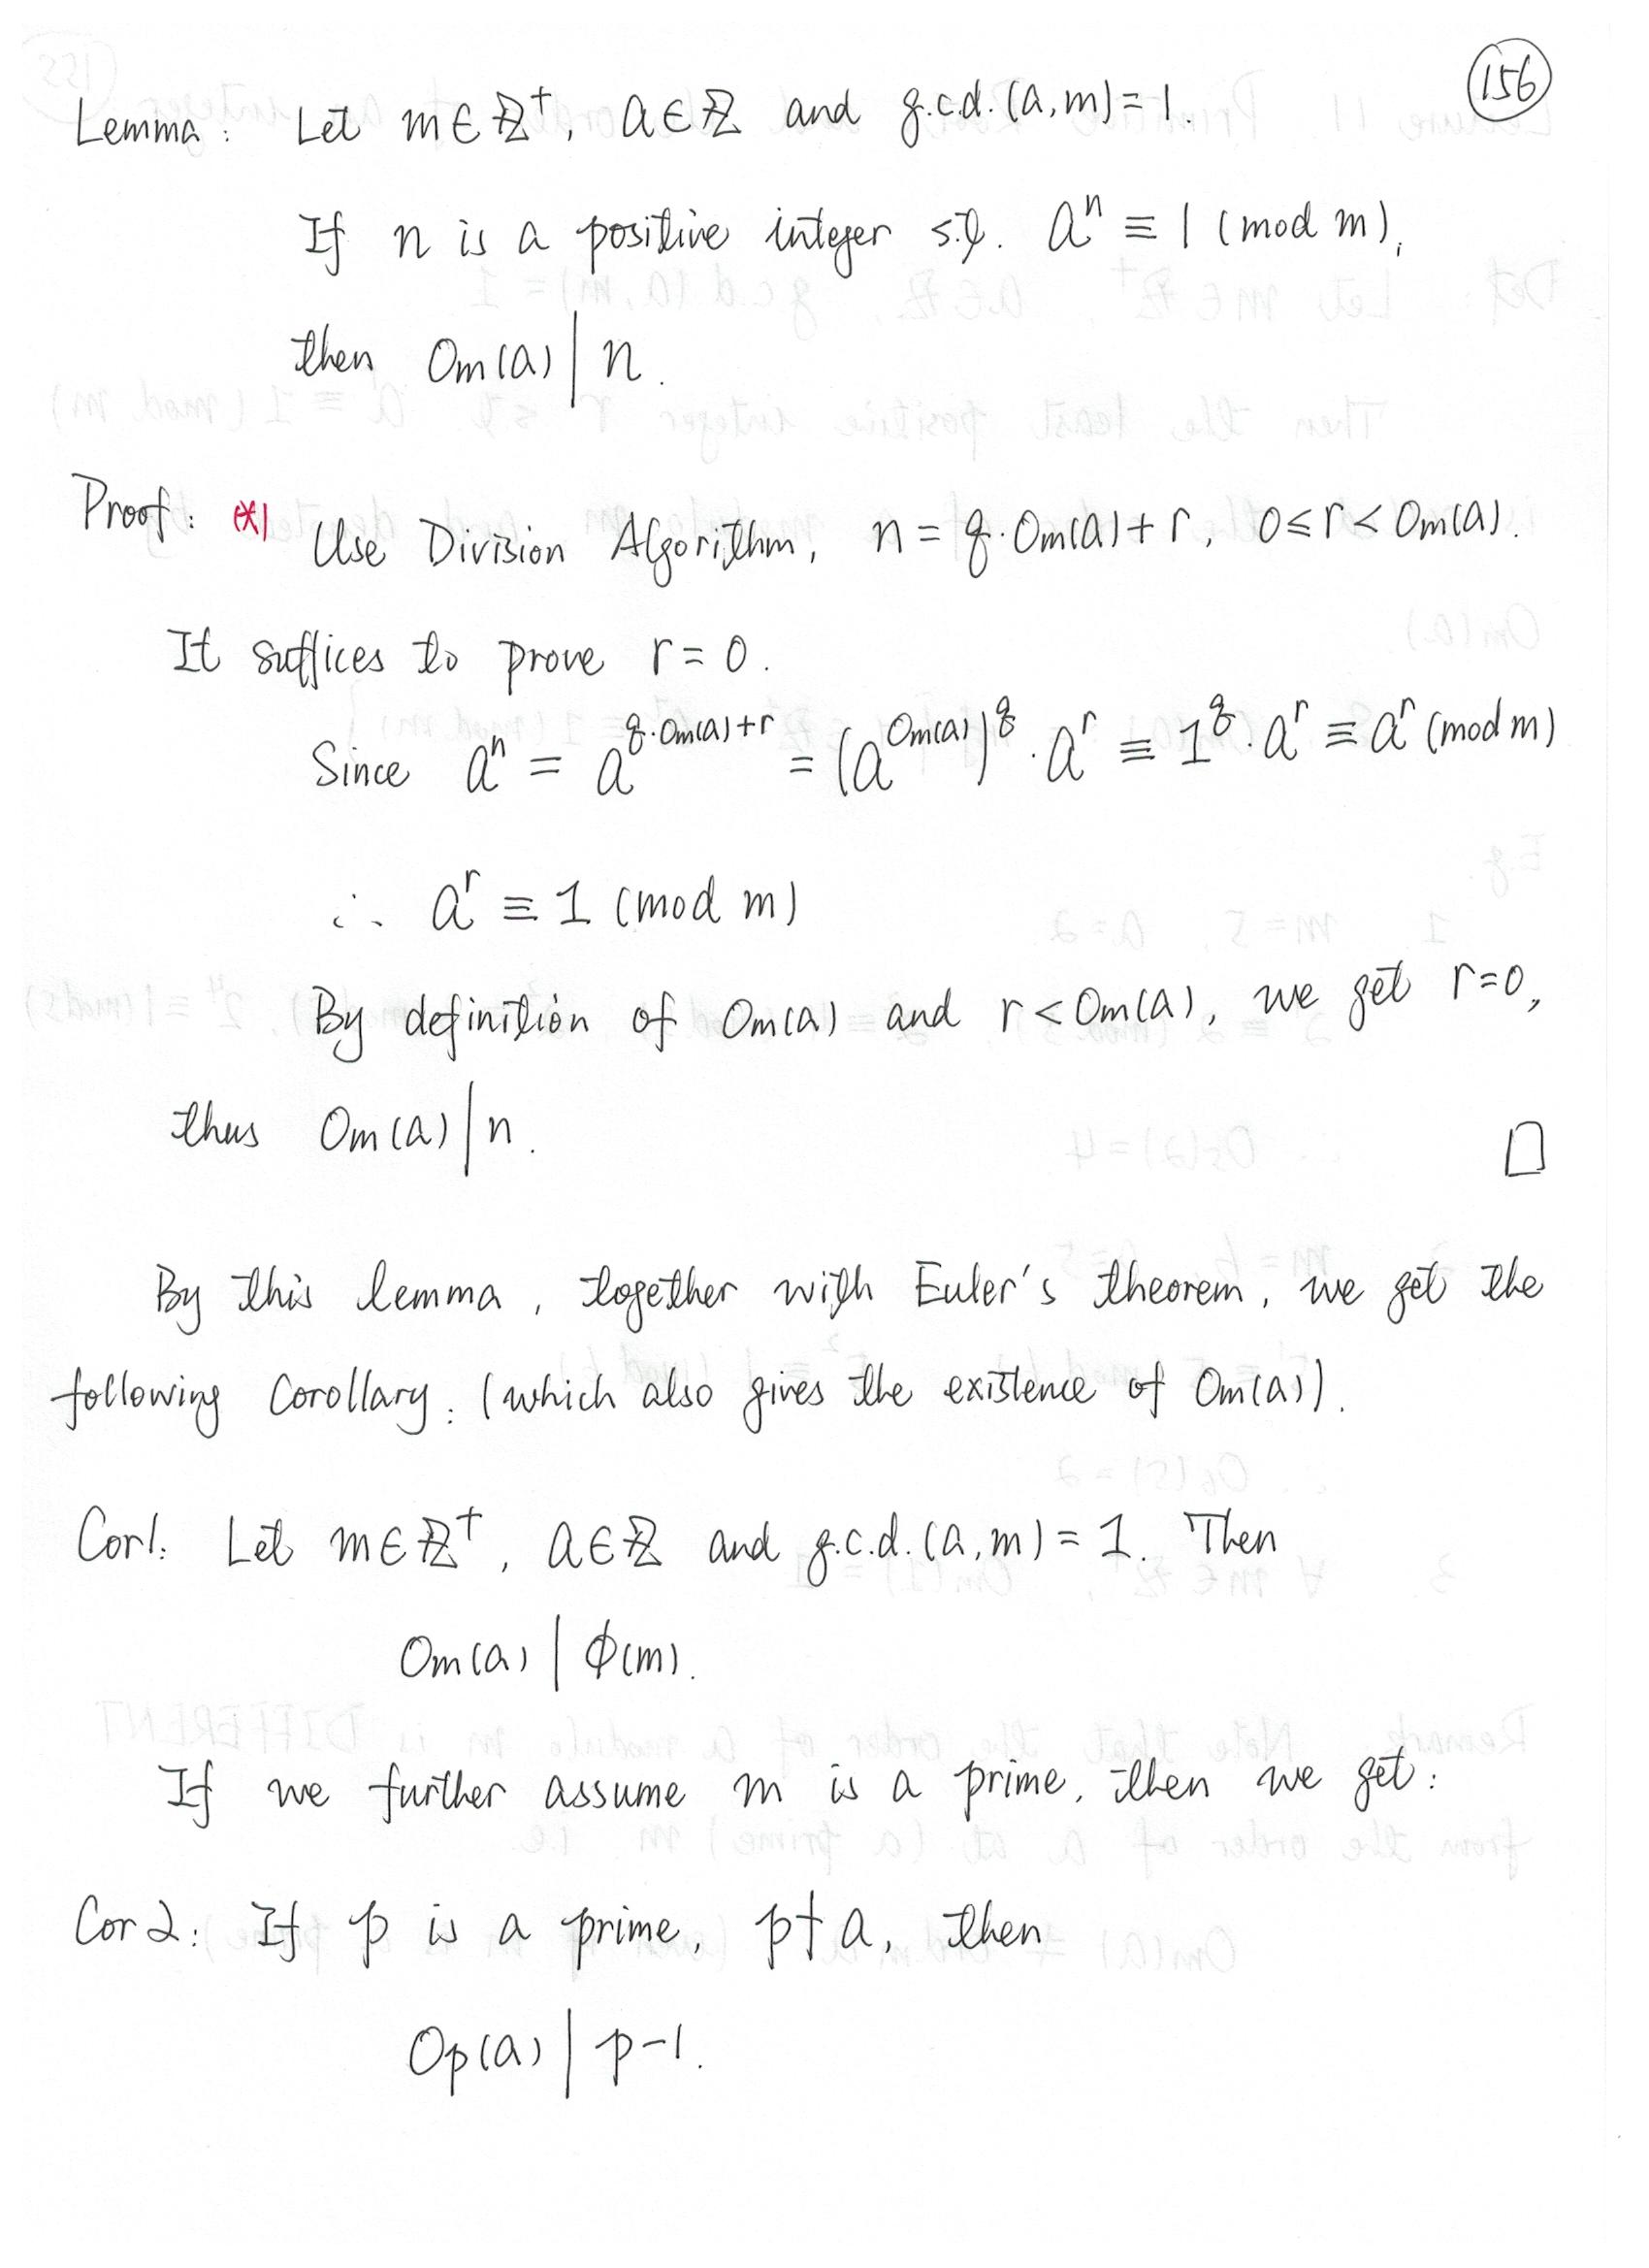 156
Lemma: Let m∈ℤ⁺, a∈ℤ and g.c.d.(a,m)=1.
If n is a positive integer s.t. aⁿ ≡ 1 (mod m),
then Om(a) | n.
Proof: (*) Use Division Algorithm, n = q·Om(a)+r, 0≤r<Om(a).
It suffices to prove r=0.
Since aⁿ = a^(q·Om(a)+r) = (a^(Om(a)))^q · a^r ≡ 1^q · a^r ≡ a^r (mod m)
∴ a^r ≡ 1 (mod m)
By definition of Om(a) and r<Om(a), we get r=0,
thus Om(a) | n. □
By this lemma, together with Euler's theorem, we get the
following Corollary: (which also gives the existence of Om(a)).
Cor1: Let m∈ℤ⁺, a∈ℤ and g.c.d.(a,m)=1. Then
Om(a) | ϕ(m).
If we further assume m is a prime, then we get:
Cor2: If p is a prime, p∤a, then
Op(a) | p-1.